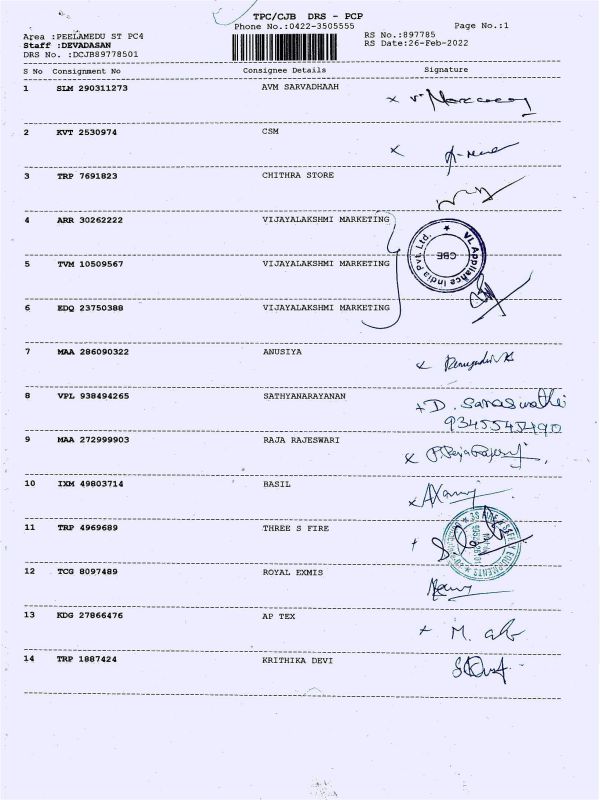 TPC/CJB DRS - PCP
Phone No.:0422-3505555 Page No.:1
Area :PEELAMEDU ST PC4 RS No.:897785
Staff :DEVADASAN RS Date:26-Feb-2022
DRS No. :DCJB89778501
S No Consignment No Consignee Details Signature
1 SLM 290311273 AVM SARVADHAAH
2 KVT 2530974 CSM
3 TRP 7691823 CHITHRA STORE
4 ARR 30262222 VIJAYALAKSHMI MARKETING
VL Appliance India Pvt. Ltd.
CBE
5 TVM 10509567 VIJAYALAKSHMI MARKETING
6 EDQ 23750388 VIJAYALAKSHMI MARKETING
7 MAA 286090322 ANUSIYA
8 VPL 938494265 SATHYANARAYANAN
9345545490
9 MAA 272999903 RAJA RAJESWARI
10 IXM 49803714 BASIL
11 TRP 4969689 THREE S FIRE
12 TCG 8097489 ROYAL EXMIS
13 KDG 27866476 AP TEX
14 TRP 1887424 KRITHIKA DEVI